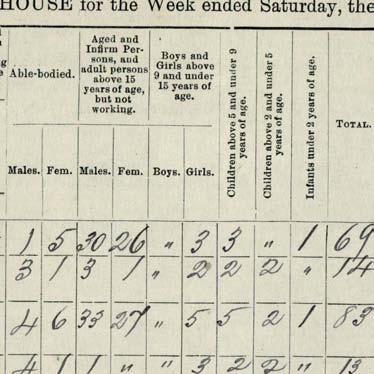 HOUSE for the Week ended Saturday, the
Able-bodied.
Aged and
Infirm Per-
sons, and
adult persons
above 15
years of age,
but not
working.
Boys and
Girls above
9 and under
15 years of
age.
Children above 5 and under 9
years of age.
Children above 2 and under 5
years of age.
Infants under 2 years of age.
TOTAL.
Males. Fem. Males. Fem. Boys. Girls.
1 5 30 26 " 3 3 " 1 69
3 1 3 1 " 2 2 2 " 14
4 6 33 27 " 5 5 2 1 83
4 1 1 " " 3 2 2 " 13